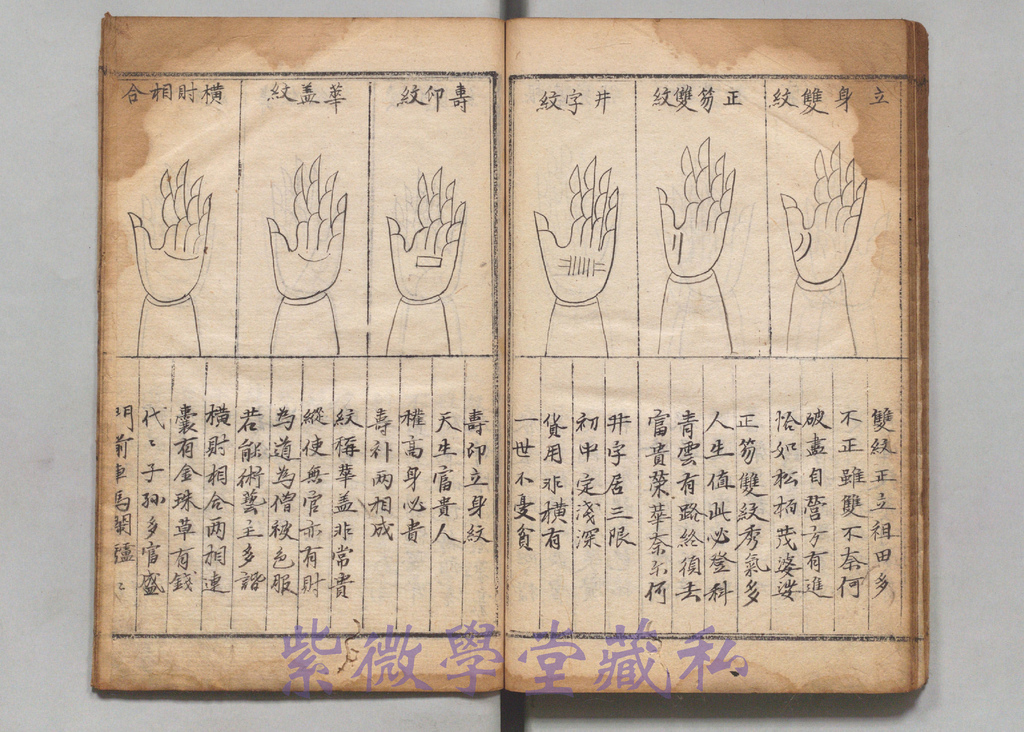 立身雙紋
正笏雙紋
井字紋
雙紋正立祖田多
不正雖雙不奈何
破盡自營方有進
恰如松柏茂婆娑
正笏雙紋秀氣多
人生值此必登科
青雲有路終須去
富貴榮華奈尔何
井字居三限
初中定淺深
貨用非橫有
一世不憂貧
壽印紋
華盖紋
橫財相合
壽印立身紋
天生富貴人
權高身必貴
壽补兩相成
紋稱華盖非常貴
縱使無官亦有財
為道為僧被色服
若能術藝主多諧
橫財相合兩相連
囊有金珠草有錢
代〻子孫多官盛
門前車馬鬧〻
紫微學堂藏私